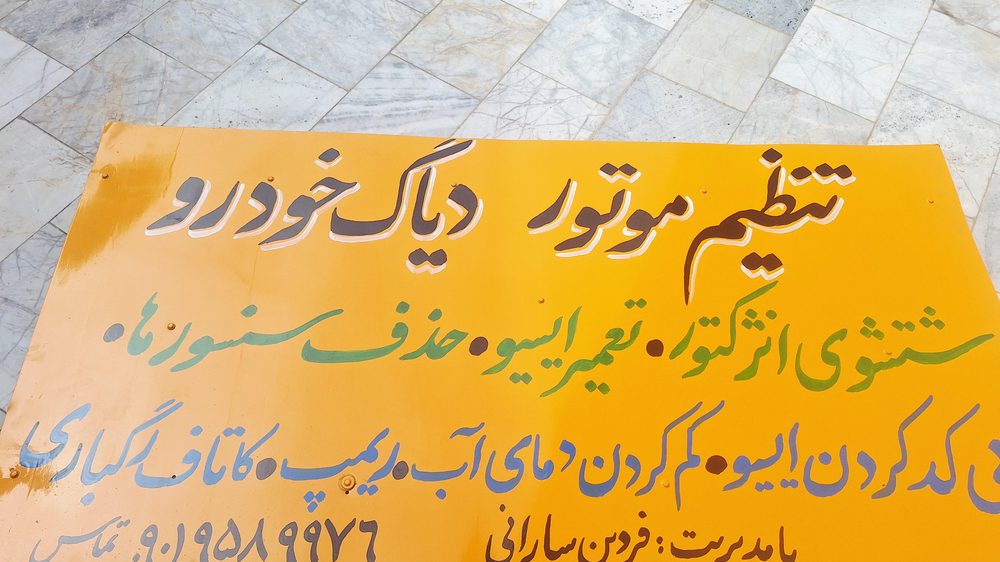 تنظیم موتور دیاگ خودرو
شتشوی انژکتور • تعمیر ایسیو • حذف سنسورها •
کد کردن ایسیو • کم کردن دمای آب • ریمپ • کاتاف رگباری
بامدیریت : فردین سارانی تماس ۰۹۰۱۹۵۸۹۹۷۶